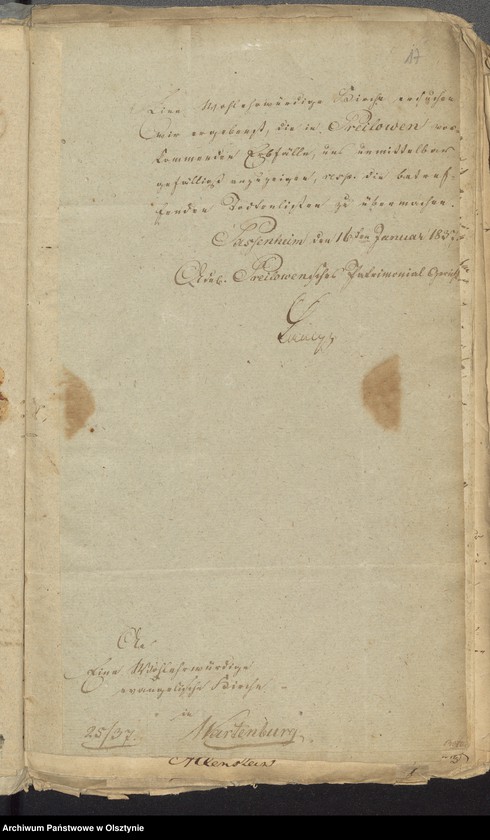 17
Eine Wohlehrwürdige Kirche ersuchen
wir ergebenst, die in Preilowen vor-
kommenden Erbfälle, uns unmittelbar
gefälligst anzuzeigen, resp. die betref-
fenden Todtenlisten zu übermachen.
Passenheim den 16ten Januar 183
Adel. Preilowensches Patrimonial Gericht
An
Eine Wohlehrwürdige
evangelische Kirche
in
25/37. Wartenburg
Allenstein
Archiwum Państwowe w Olsztynie